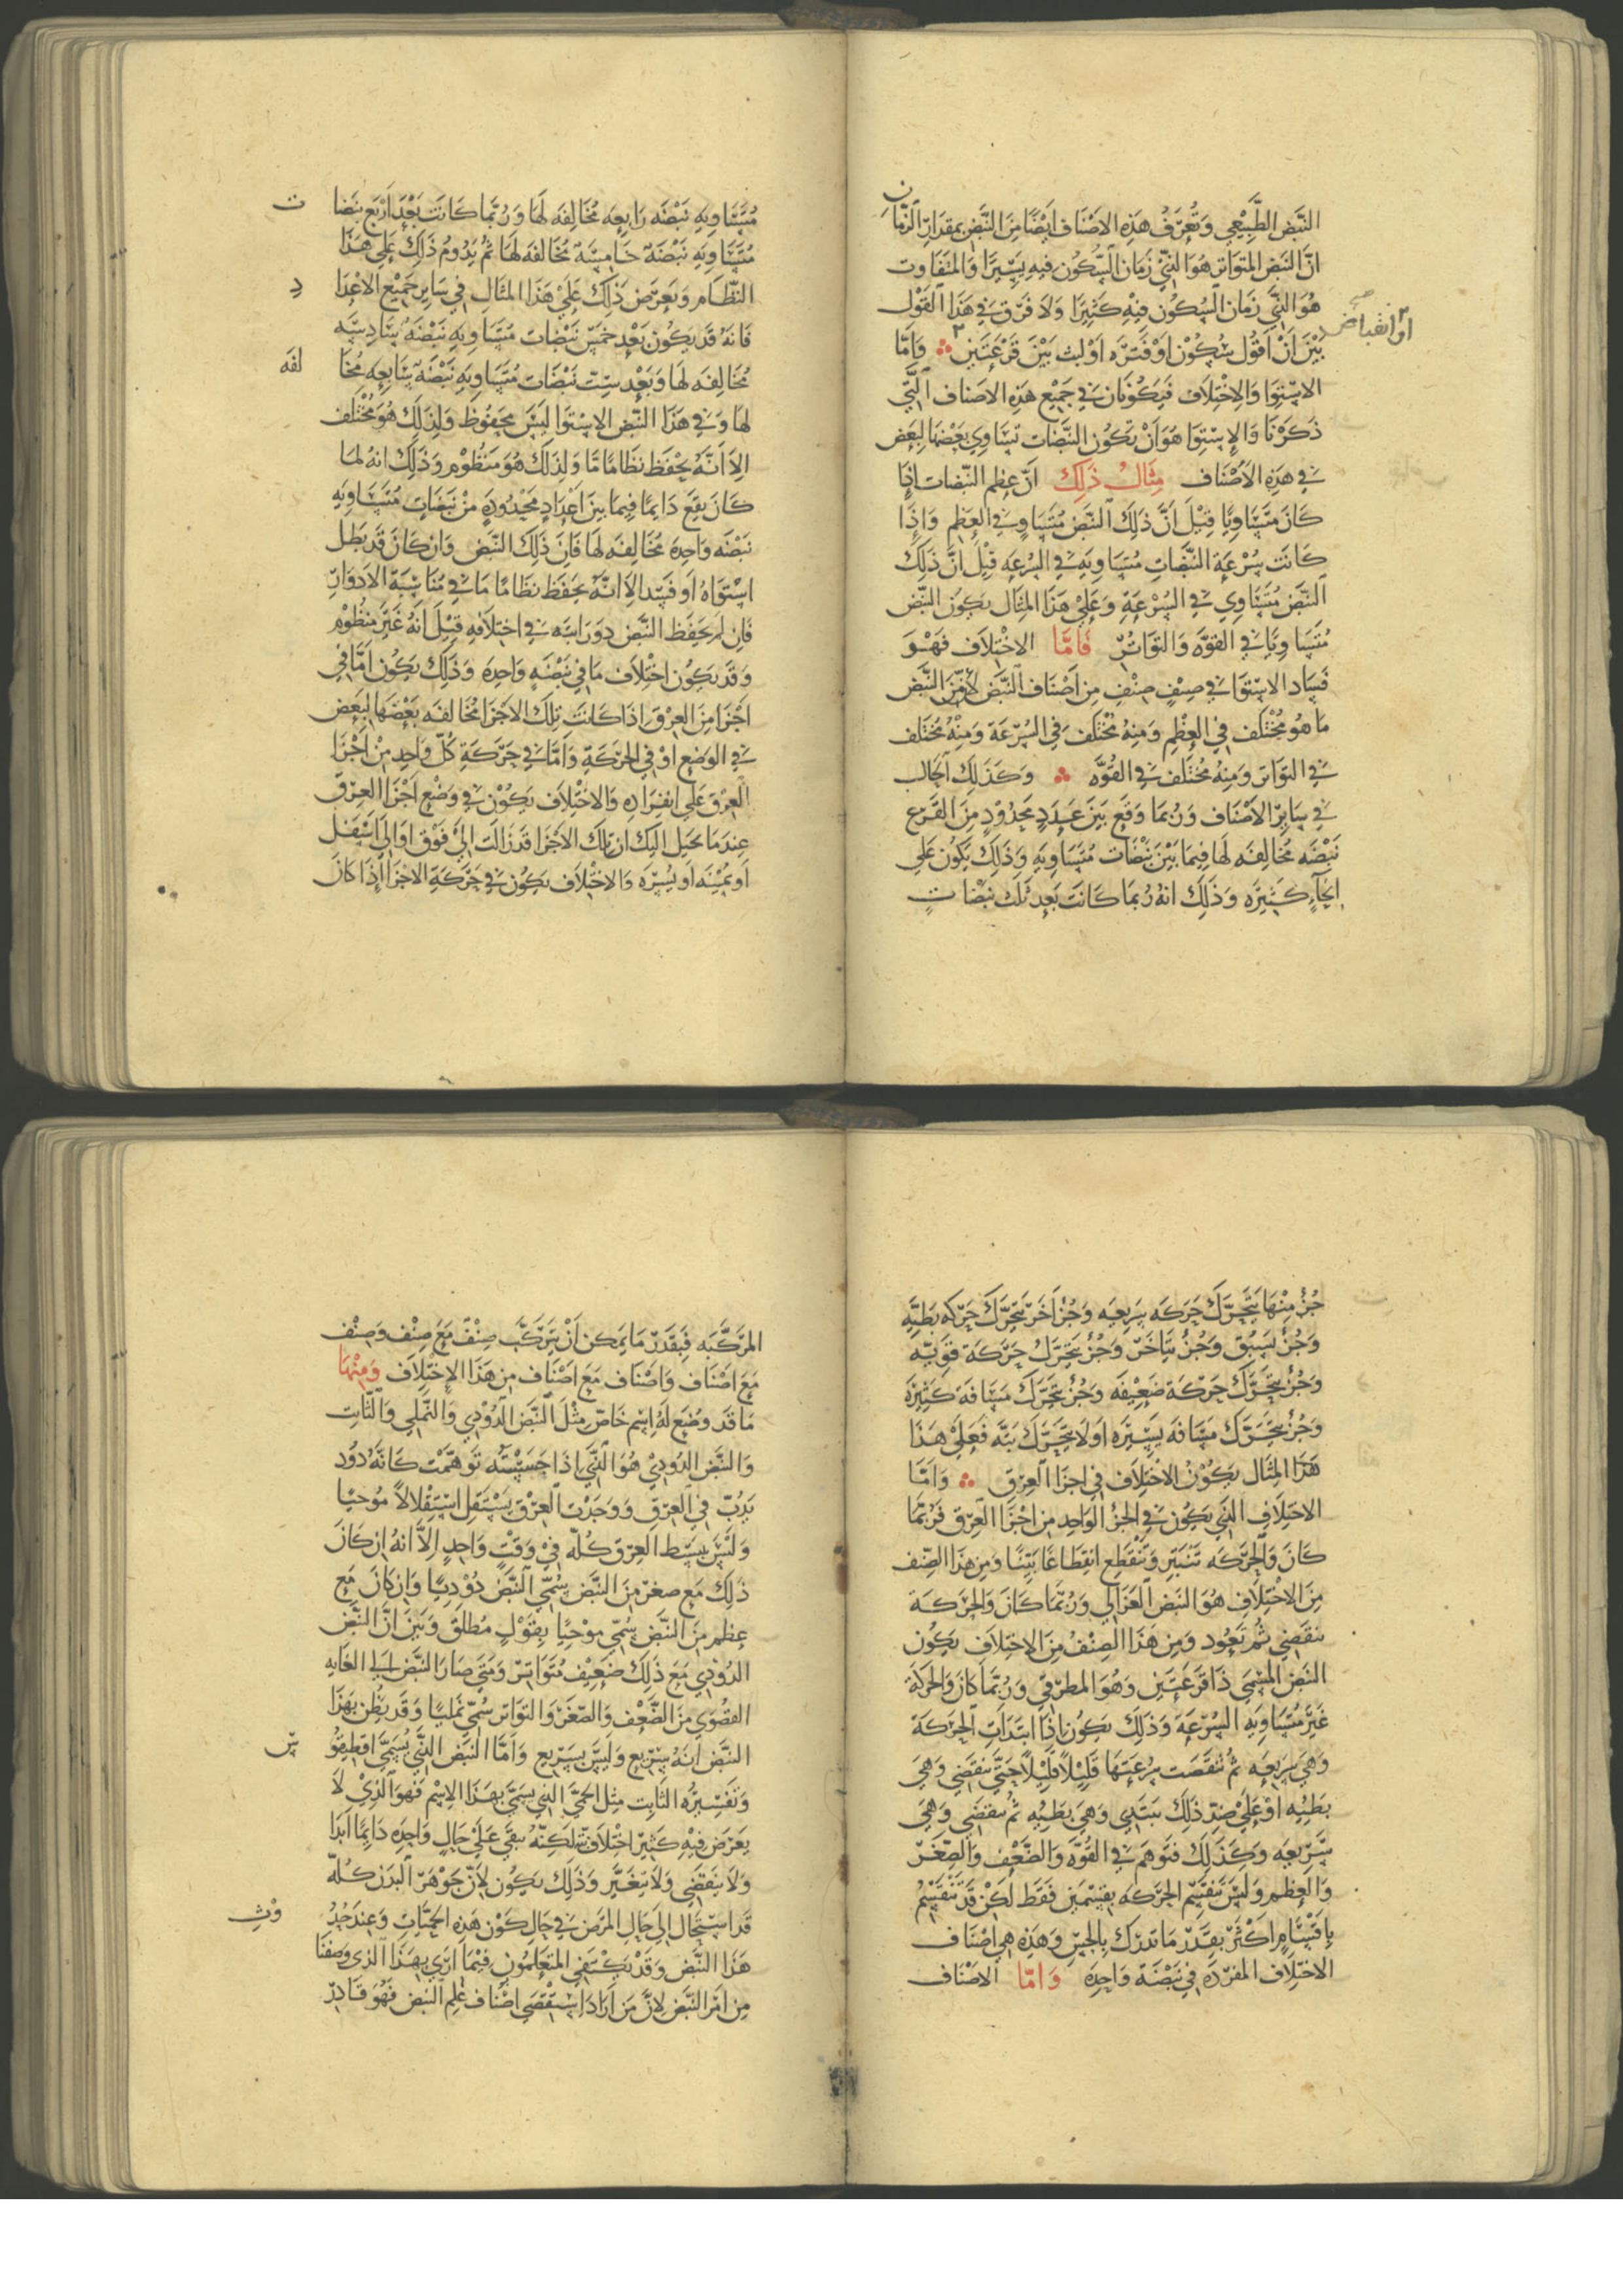 النَّبَض الطَّبِيْعِي وَتُعرَّفُ هَذِهِ الاَصْنَاف اَيْضًا مِنَ النَّبَضِ بِمقدَارِ الزَّمَانِ
انَّ النَبَض المتوَاتر هُوَ الذِيْ زَمَان السُّكُون فيهِ يَسِيرًا وَالمتفَاوت
هُوَ الذِّي زَمَان السُكُون فِيْهِ كَثِيرًا وَلاَ فَرَّق فِي هَذَا القَوْل
بَيْنَ اَنْ اَقُوْل سُكُوْن اَوْ فَتَرَه اَوْ لبث بَيْنَ قَرْعَتَين وَاَمَّا
اَوْ انقباض صح
الاسْتِوَا وَالاِخْتِلاَف فَيَكُونَان فِي جَمِيْع هَذِهِ الاصنَاف الَّتِي
ذَكَرْنَا وَالاِسْتِوَا هَوَ اَنْ تَكُون النَّبَضَات تسَاوِي بَعْضهَا لِبَعض
فِي هَذِهِ الاَصْنَاف مِثَالُ ذَلِكَ اَنّ عِظم النَّبضات اذَا
كَانَ مُتَسَاوِيًا قِيْلَ اَنَّ ذَلِكَ النَّبَضَ مُتَسَاوٍ فِي العِظَم وَاِذَا
كَانَت سُرْعَة النَّبَضَاتِ مُتسَاوِيَهِ فِي السُرْعَهِ قِيْلَ انَّ ذَلِكَ
النَّبَض مُتَسَاوِي فِي السُرْعَةِ وَعَلِيْ هَذَا المِثَال يَكوُن النَبض
مُتَسَاوِيًا فِي القوَّه وَالتوَاتُرْ فَامَّا الاخْتِلاَف فَهْوَ
فَسَاد الاسْتوَا فِي صِنْفٍ صِنْفٍ مِن اَصْنَاف النَبَض لاَنّ مِنَ النَّبَض
مَا هُو مُخْتَلف فِي العِظْمِ وَمِنهُ مُخْتَلَف فِي السُرّعَة وَمِنْهُ مُختَلف
فِي التوَاتر وَمِنهُ مُختَلف فِي القُوَّه وَكَذَلِكَ اَلحَال
فِي سَايرِ الاَصْنَاف وَرُبمَا وَقَع بَيَن عَدَدٍ مَحدُوْدٍ مِنَ القَرْع
نَبْضَه مُخَالِفَه لَهَا فِيمَا بَيْنَ نبْضَات مُتَسَاويَهِ وَذَلِكَ يَكُون عَلى
اِنحآءٍ كَثِيَرَه وَذَلِكَ انهُ رُبمَا كَانَت بَعدِ ثَلث نبْضَاتٍ
مُتسَاويهِ نَبْضَه رَابِعَه مُخَالِفَه لَهَا وَرُبَّمَا كَانَت بَعْدَ اَرْبَع نبَضات
مُتَسَاويَهِ نَبْضَة خَامِسَة مُخَالفَه لهَا ثُمَّ يَدُومُ ذَلِكَ عَلِى هَذَا
النظَامِ وَيَعرَض ذَلِكَ عَلِيْ هَذَا المثَالِ فِي سَايرِ جَميْع الاعْدَاد
فَانهُ قَد يَكُون بَعْدِ خَمْسِ نَبْضَات مُتَسَاويهِ نَبْضَهُ سَادِسَه
مُخَالِفَه لهَا وَبَعْدِ سِتّ نَبْضَات مُتسَاويهِ نَبْضَة سَابِعِه مُخَالفَه
لهَا وَفِي هَذَا النَّبض الاِسْتوَا ليَسَ مَحفُوظ وَلِذلِكَ هُوَ مُخْتَلف
الاَ اَنَّهُ يَحْفَظ نظَامًا مَّا وَلِذَلكَ هُوَ مَنظُوْم وَذلكَ انهُ لما
كَانَ يَقَعَ دَايمًا فيِمَا بَيَن اعْدَادٍ مَحْدُودَةٍ مِنْ نَبَضَاتٍ مُتَسَاويهِ
نَبْضَه وَاحِدَه مُخَالِفَه لَهَا فَانَ ذَلِكَ النَّبَض وَانْ كَانَ قَدْ بَطَل
اسْتوَاهُ اَو فَسَد الاَ انَّهُ يحفَظ نظَامًا مَا فِي مُنَاسَبَة الاَدوَارِ
فَانْ لم يَحْفَظ النَّبْض دوَرَا بته فِي اختِلاَفهِ قِيْلَ اَنهُ غَيْر مَنظُوْم
وَقَد يَكُون اخْتِلاَف مَا فِي نَبْضَهٍ وَاحِدَه وَذَلِكَ يَكُون اَمَّا فِي
اَجْزَا مِنَ العِرْقِ اِذَا كَانَت تلك الاَجزَا مُخَالفَه بَعْضَهَا لِبَعِض
فِي الوَضِع اَوْ فِي الحَرَكَةِ وَاَمَّا فِي حَرَكَةِ كُلّ وَاحِدٍ مِنْ اَجْزَا
العِرْقَ عَلِى انفِرَادِهِ وَالاخْتِلاَف يَكُوْن فِي وَضْعِ اَجْزَا العِرْق
عِندَمَا يُخيَل اليك انّ تلك الاَجزَا قَد زَالَت اِلَيْ فَوْق اَوْ الى اَسْفَل
اَو يَمْيْنَه اَو يُسرَه وَالاختْلاَف يكوُن فِي حَرَكَةِ الاجزَا اِذَا كانَ
جُزْ مِنْهَا يَتَحَرَّكَ حَرَكَه سَرِيعِه وَجُزْ اَخَر يَتَحَرَّك حَرَكه بَطِيَّهِ
وَجُزْ يَسَبُق وَجُزْ يتَاخَر وَجُزْ يتحَرَّكُ حَرَكَة قَوَيِّه
وَجُزْ يتحَرَّكَ حَرَكَة ضَعيْفَه وَجُزْ يتَحَرَّكَ مَسَافَة كَثِيَرَه
وَجُزْ يتحَرَّك مَسَافَه يَسيْرَه اَو لاَ يتحَرَّكَ بَتّه فَعَلِيْ هَذَا
هَذَا المِثَال يَكوُنُ الاختِلاَف فِي اجزَا العِرْق وَاَمَّا
الاختِلاَف الذِي يَكُون فِي الجُز الوَاحِد مِن اجزَا العِرْق فَرُبمَا
كَانَ وَالحَرَكَه تَنْبَتِر وَتَنْقَطع انقِطَاعًا بَيِّنًا وَمِن هَذَا الصِّنف
مِنَ الاخْتِلاَف هُوَ النَبَض العَزَالِي وَرُبَّمَا كَانَ وَالحَرَكَة
تنقَضِي ثُم تَعُود وَمِن هَذَا الصِنْفْ مِنَ الاختِلاَف يَكُون
النَّبَض المُسَمى ذَا قَرَعَتَين وَهُوَ المطرَّقِيّ وَرُبَّمَا كَانَ وَالحَرَكَة
غَيْر مُتَسَاويهِ السُرْعَه وَذَلِكَ يَكوُن اِذَا ابتَدَاتِ الحَركَة
وَهِيَ سَرِيعَه ثُم تنقَصَت سُرْعَتهَا قَلِيْلاً قَلِيْلاً حَتَّى تنقَضِي وَهيَ
بَطِيِه اَوْ عَلِي ضِدّ ذَلِكَ تبتَدِي وَهيَ بَطِيِه ثُم تنقضَي وَهيَ
سَرِيعَه وَكَذَلكَ فتَوَهم فِي القُوَّه وَالضَّعْف وَالصِّغَر
وَالعِظم وَلَيْسَ تَنقَسِم الحَرَكَه بقِسْمَين فَقَط لَكِنْ قَدْ تَنْقَسِمُ
بِاقْسَامٍ اَكْثَر بقَدر مَا تدرَك بِالحِسِّ وَهَذِهِ هي اصْنَاف
الاختِلاَف المفرَده فِي نَبْضَة وَاحِدَه وَامَّا الاَصْنَاف
المرَكَّبَه فَبقَدر مَا يَمكن اَنْ يَتَركَّب صِنْف مَع صِنْف وَصِنْف
مَع اَصْنَاف وَاَصْنَاف مَع اَصْنَاف مِن هَذَا الاِخْتِلاَف وَمِنْهَا
مَا قَد وضُعَ لَهُ اِسْم خَاصّ مِثْلَ النَّبَض الدُوْدِي وَالنَّملِي وَالثَّابت
وَالنَّبَض الدُودِيْ هُوَ الذِّي اِذَا جَسَسْتَهُ توَهَّمْت كَانهُ دُوْد
يَدُبّ فِي العِرْقِ وَوَجَدْت العِرْق يَسْتَقِل اسْتِقْلالاً مُوجيًا
وَلَيْسَ يَنبَسط العِرْق كُلّه فِيْ وَقْتٍ وَاحِدٍ اِلاَّ انهُ انْ كَانَ
ذلِكَ مَع صِغر مِنَ النَّبَض سُمِيّ النَّبَض دُوْدِيًا وَاِن كَانَ مَع
عِظمٍ مِنَ النَّبَضِ سُمّي مَوْجِيًا بِقوْلٍ مُطلَق وَبَيَن انَّ النَّبَض
الدُوْدِي مَعَ ذَلِكَ ضَعِيْف مُتَوَاتر وَمتَى صَارَ النَّبض الى الغَايهِ
القصُوَي مِنَ الضَّعْفِ وَالصِّغَرِ وَالتوَاتر سُمّي نَمليًا وَقَد يُظن بهَذَا
النَّبَض انهُ سَرِيع وَلَيْسَ بسَرِيع وَامَّا النبَض الذِّي يُسَمَّى اقطِيقُوسْ
وَتَفْسِيرُهُ الثَابِت مِثل الحمَّى التي تسَمَى بهَذَا الاِسْم فَهوَ الذِيْ لاَ
يَعرَض فيْهِ كَثِيْر اختْلاَفٍ لكِنهُ يبقَى عَليْ حَالٍ وَاحِدَه دَايمًا اَبَدا
وَلاَ ينقَضِي وَلاَ يتغَيَّر وَذَلِكَ يكُون لاَنّ جَوْهَر البدَن كُلّهُ
قَدِ اسْتحَال اِلَى حَالِ المرَض فِي حَالِ كَوْن هَذِهِ الحمّيَاتِ وَعِندَ حُدُوْثِ
هَذَا النَّبَض وَقَدْ يَكْتَفِي المتعَلموُن فِيْمَا اَرَي بِهَذَا الذى وَصفنَا
مِن اَمْر النَّبَض لاَنَّ مَن اَرَادَ اسْتقْصَي اصْنَاف عِلم النَبض فَهُوَ قَادِر